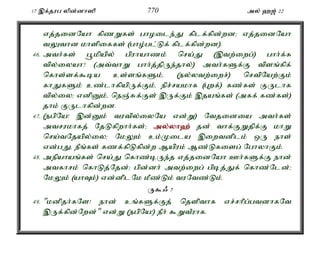 17 இக்தரப லின்னாஸி 770 அல் ஹஜ் 22
எத்தனையோ கிணறுகள் பாழடைந்து கிடக்கின்றன; எத்தனையோ
வலுவான மாளிகைகள் (பாழ்பட்டுக் கிடக்கின்றன).
46. அவர்கள் பூமியில் பிரயாணம் செய்து (இவற்றைப்) பார்க்க
வில்லையா? (அவ்வாறு பார்த்திருந்தால்) அவர்களுக்கு விளங்கிக்
கொள்ளக்கூடிய உள்ளங்களும், (நல்லவற்றைச்) செவியேற்கும்
காதுகளும் உண்டாகியிருக்கும், நிச்சயமாக (புறக்) கண்கள் குருடாக
வில்லை; எனினும், நெஞ்சுக்குள் இருக்கும் இதயங்கள் (அகக் கண்கள்)
தாம் குருடாகின்றன.
47. (நபியே! இன்னும் வரவில்லையே என்று) வேதனையை அவர்கள்
அவசரமாகத் தேடுகிறார்கள்; அல்லாஹ் தன் வாக்குறுதிக்கு மாறு
செய்வதேயில்லை; மேலும் உம்முடைய இறைவனிடம் ஒரு நாள்
என்பது, நீங்கள் கணக்கிடுகின்ற ஆயிரம் ஆண்டுகளைப் போலாகும்.
48. அநியாயங்கள் செய்து கொண்டிருந்த எத்தனையோ ஊர்களுக்கு நான்
அவகாசம் கொடுத்தேன்; பின்னர் அவற்றைப் பிடித்துக் கொண்டேன்;
மேலும் (யாவும்) என்னிடமே மீண்டும் வரவேண்டும்.
ருகூஃ 7
49. "மனிதர்களே! நான் உங்களுக்குத் தெளிவாக எச்சரிப்பவனாகவே
இருக்கின்றேன்" என்று (நபியே!) நீர் கூறுவீராக.